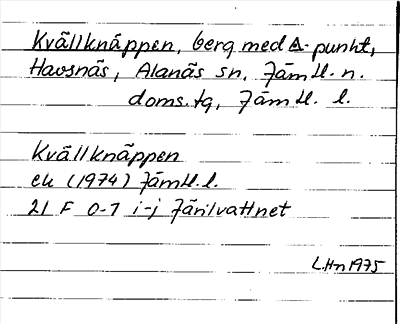 Kvällknäppen, berg med Δ-punkt,
Havsnäs, Alanäs sn, Jämtl. n.
doms.tg, Jämtl. l.
Kvällknäppen
ek (1974) Jämtl. l.
21 F 0-1 i-j Järilvattnet
L.Hn 1975